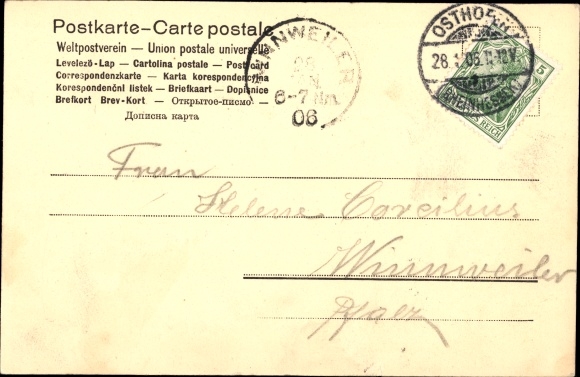 Postkarte-Carte postale
Weltpostverein - Union postale universelle
Levelező-Lap - Cartolina postale - Post card
Correspondenzkarte - Karta korespondencyjna
Korespondenční listek - Briefkaart - Dopisnice
Brefkort Brev-Kort - Открытое письмо -
Дописна карта
WINNWEILER
6-7 Nm.
06
OSTHOFEN
28.1.06.11-12V.
(RHEINHESSEN)
5
REICH
Frau
Helene Corcilius
Winnweiler
Pfalz